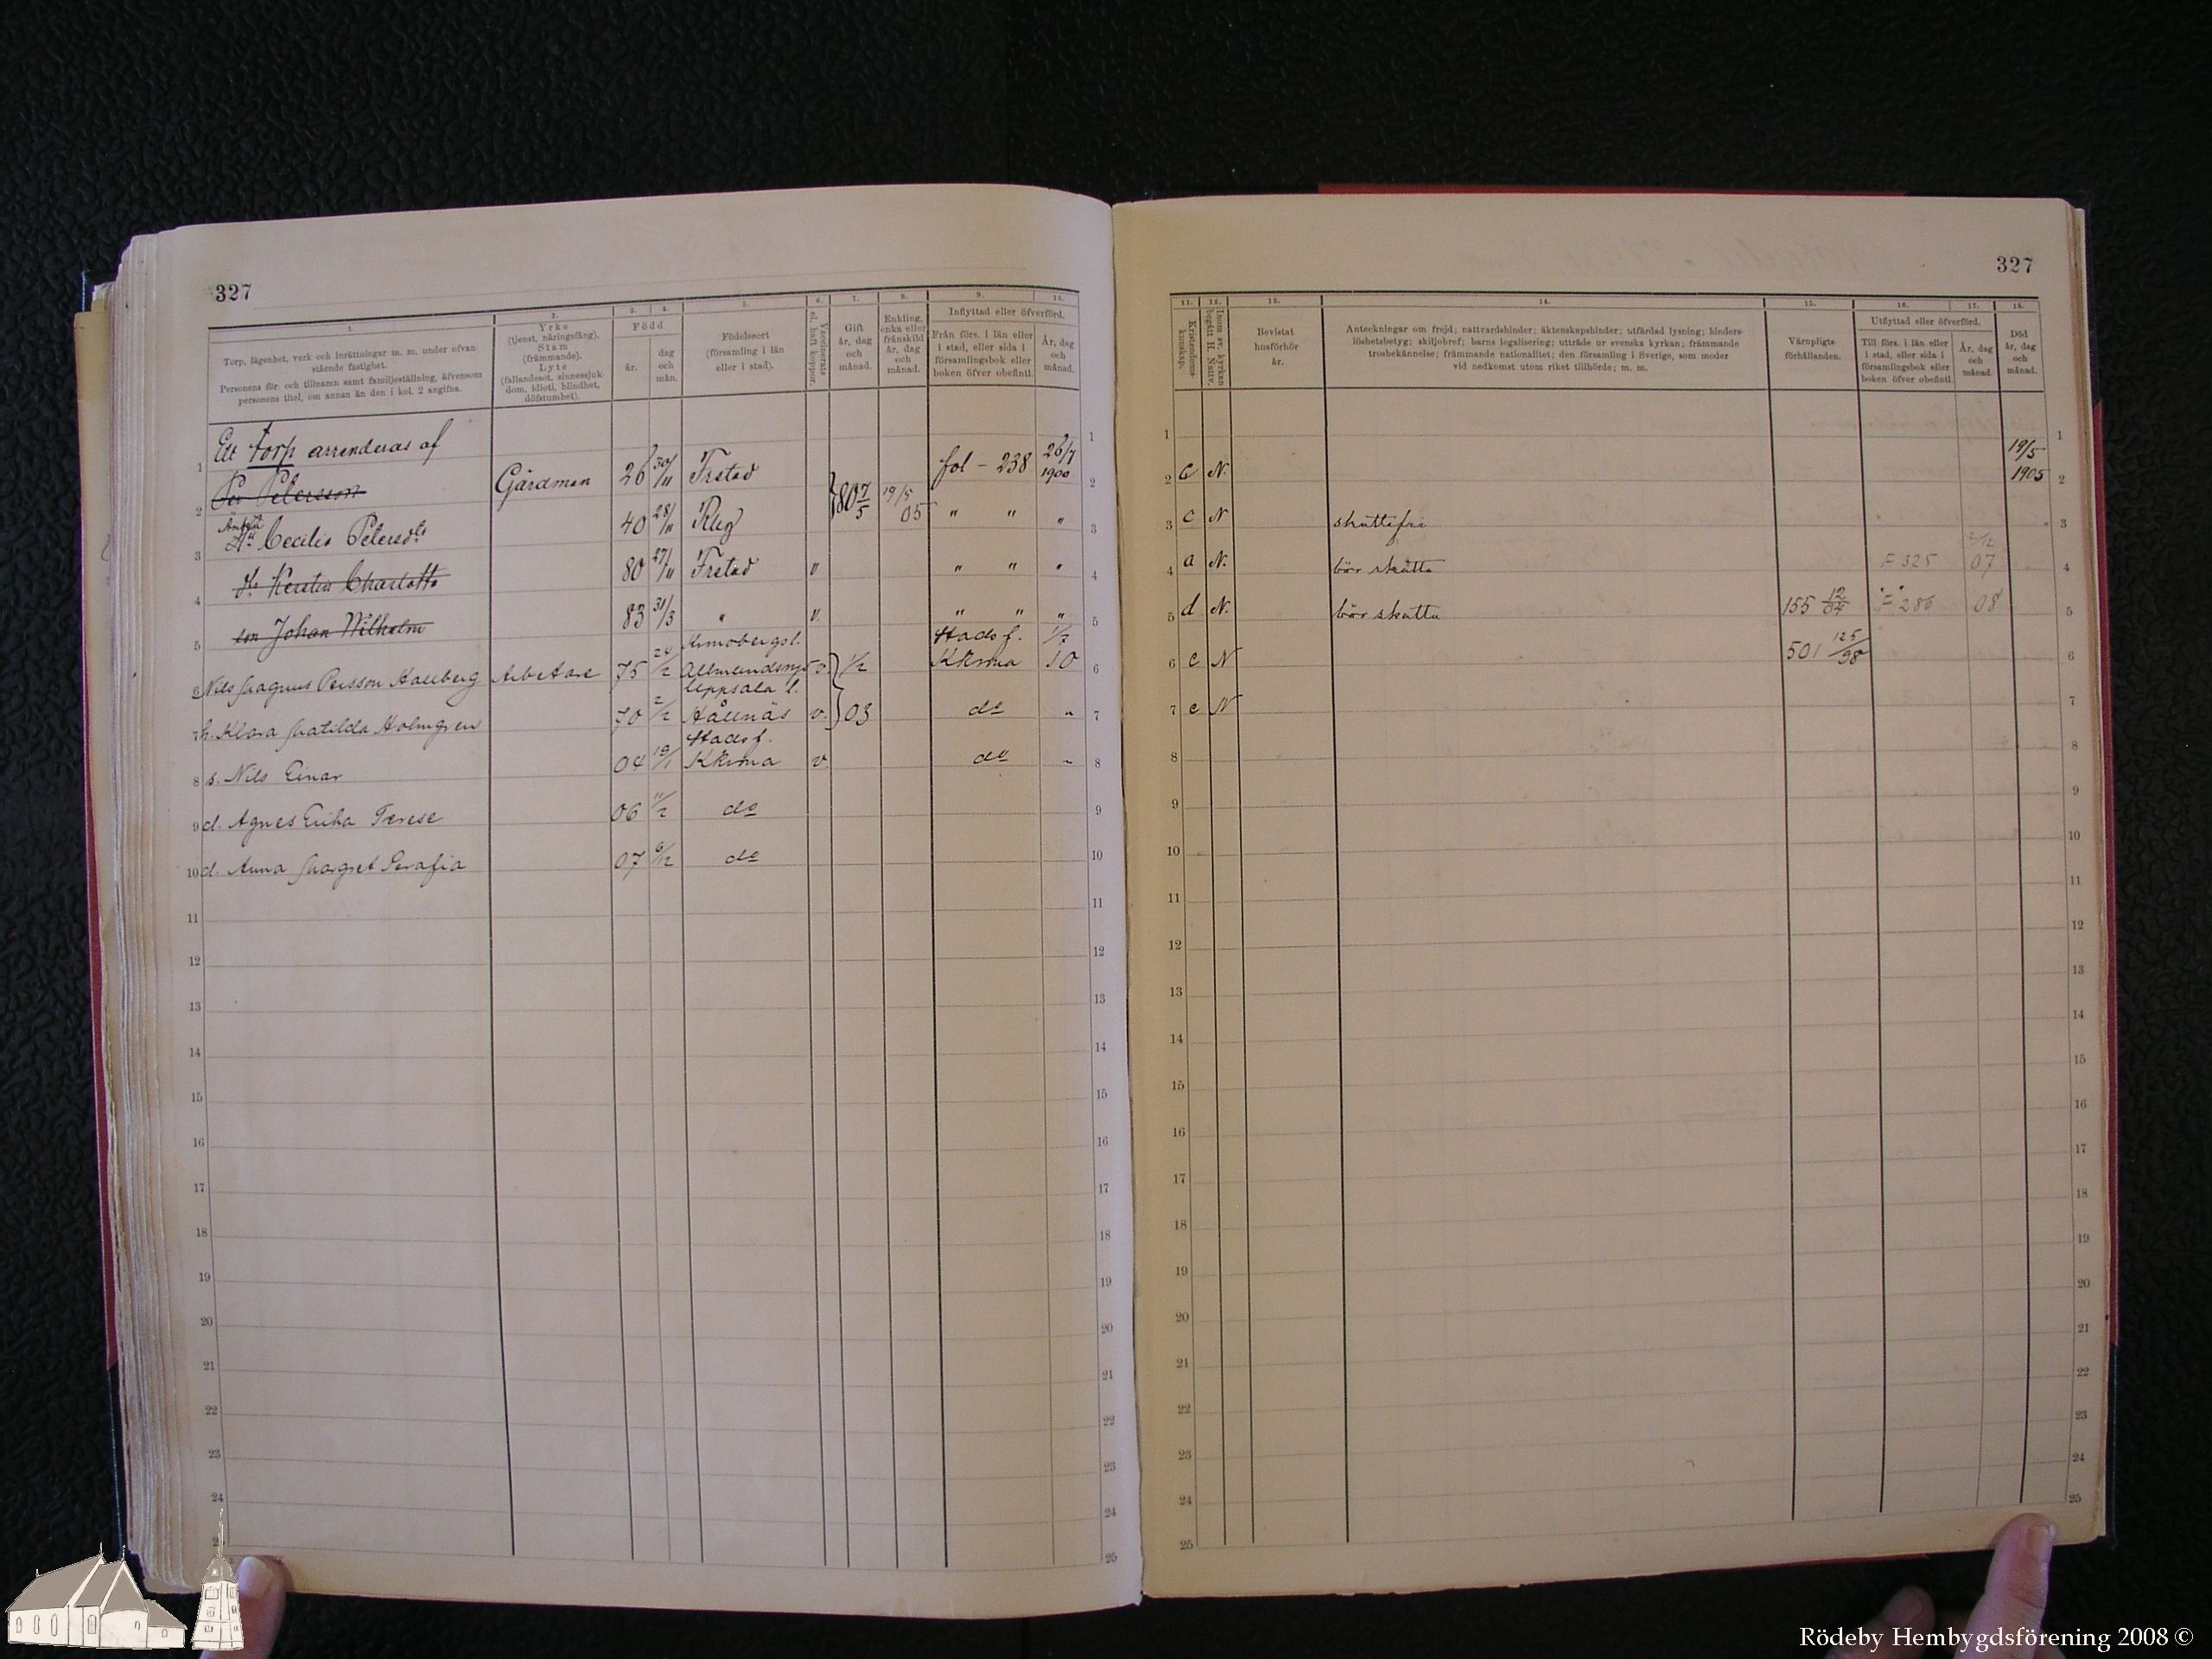 327
1. 2. 3. 4. 5. 6. 7. 8. 9. 10.
Torp, lägenhet, verk och inrättningar m. m. under ofvan
stående fastighet.
Personens för- och tillnamn samt familjeställning, äfvensom
personens titel, om annan än den i kol. 2 angifna.
Yrke
(tjenst, näringsfång).
Stam
(främmande).
Lyte
(fallandesot, sinnessjuk-
dom, idioti, blindhet,
döfstumhet).
Född
år.
dag
och
mån.
Födelseort
(församling i län
eller i stad).
Vaccinerats
el. haft koppor.
Gift
år, dag
och
månad.
Enkling,
enka eller
frånskild
år, dag
och
månad.
Inflyttad eller öfverförd.
Från förs. i län eller
i stad, eller sida i
församlingsbok eller
boken öfver obefintl.
År, dag
och
månad.
Ett torp arrenderas af
1 Per Petersson Gårdman 26 30/11 Frstad fol - 238 26/7 1900
2 Änka Hu Cecilia Petersdr 40 28/11 80 7/5 19/5 05 " " "
3 dr Kerstin Charlotta 80 27/11 Frstad " " " "
4 son Johan Wilhelm 83 31/3 " " " " "
5 Kronobergsl. Stads f. 1/7
6 Nils Magnus Persson Hallberg Arbetare 75 24/2 v. 1/2 Kkrona 10
Uppsala l.
7 h. Klara Matilda Holmgren 70 2/2 Hållnäs v. 03 do "
Stads f.
8 s. Nils Einar 04 19/1 Kkrona v. do "
9 d. Agnes Erika Terese 06 11/2 do
10 d. Anna Margret Serafia 07 6/12 do
11
12
13
14
15
16
17
18
19
20
21
22
23
24
25
327
11. 12. 13. 14. 15. 16. 17. 18.
Kristendoms-
kunskap.
Inom sv. kyrkan
begått H. Nattv.
Bevistat
husförhör
år.
Anteckningar om frejd; nattvardshinder; äktenskapshinder; utfärdad lysning; hinders-
löshetsbetyg; skiljobref; barns legalisering; utträde ur svenska kyrkan; främmande
trosbekännelse; främmande nationalitet; den församling i Sverige, som moder
vid nedkomst utom riket tillhörde; m. m.
Värnpligts-
förhållanden.
Utflyttad eller öfverförd.
Till förs. i län eller
i stad, eller sida i
församlingsbok eller
boken öfver obefintl.
År, dag
och
månad.
Död
år, dag
och
månad.
1
2 C N. 19/5 1905
3 c N skattefri
4 a N. bör skatta F 325 07
5 d N. bör skatta 155 12/04 F 286 08
6 c N 501 125/98
7 c N
8
9
10
11
12
13
14
15
16
17
18
19
20
21
22
23
24
25
Rödeby Hembygdsförening 2008 ©